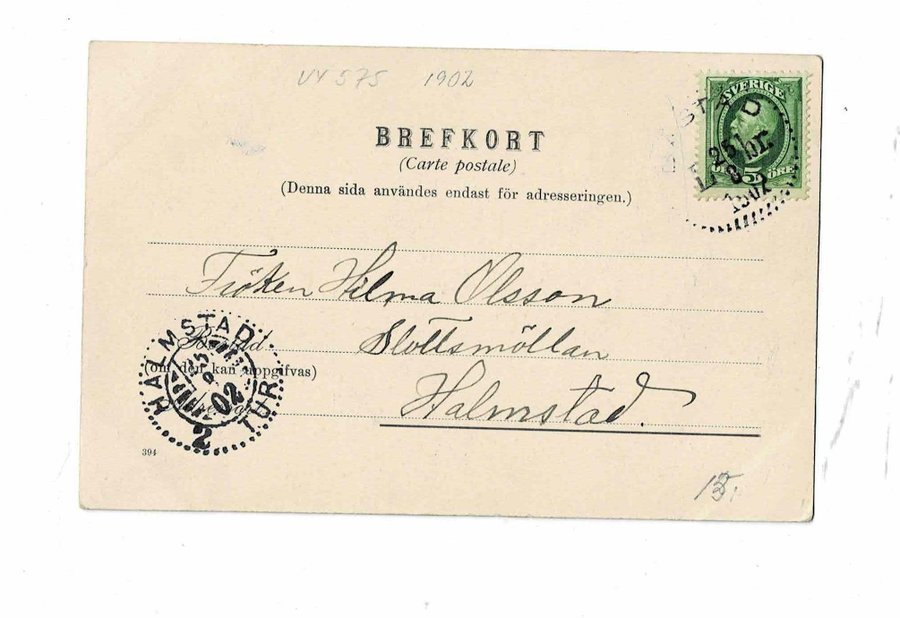 VY 575 1902
SVERIGE
5 ÖRE
25
1902
BREFKORT
(Carte postale)
(Denna sida användes endast för adresseringen.)
Fröken Hilma Olsson
Slottsmöllan
Halmstad.
Bostad
(om den kan uppgifvas)
HALMSTAD
TUR
02
2
394